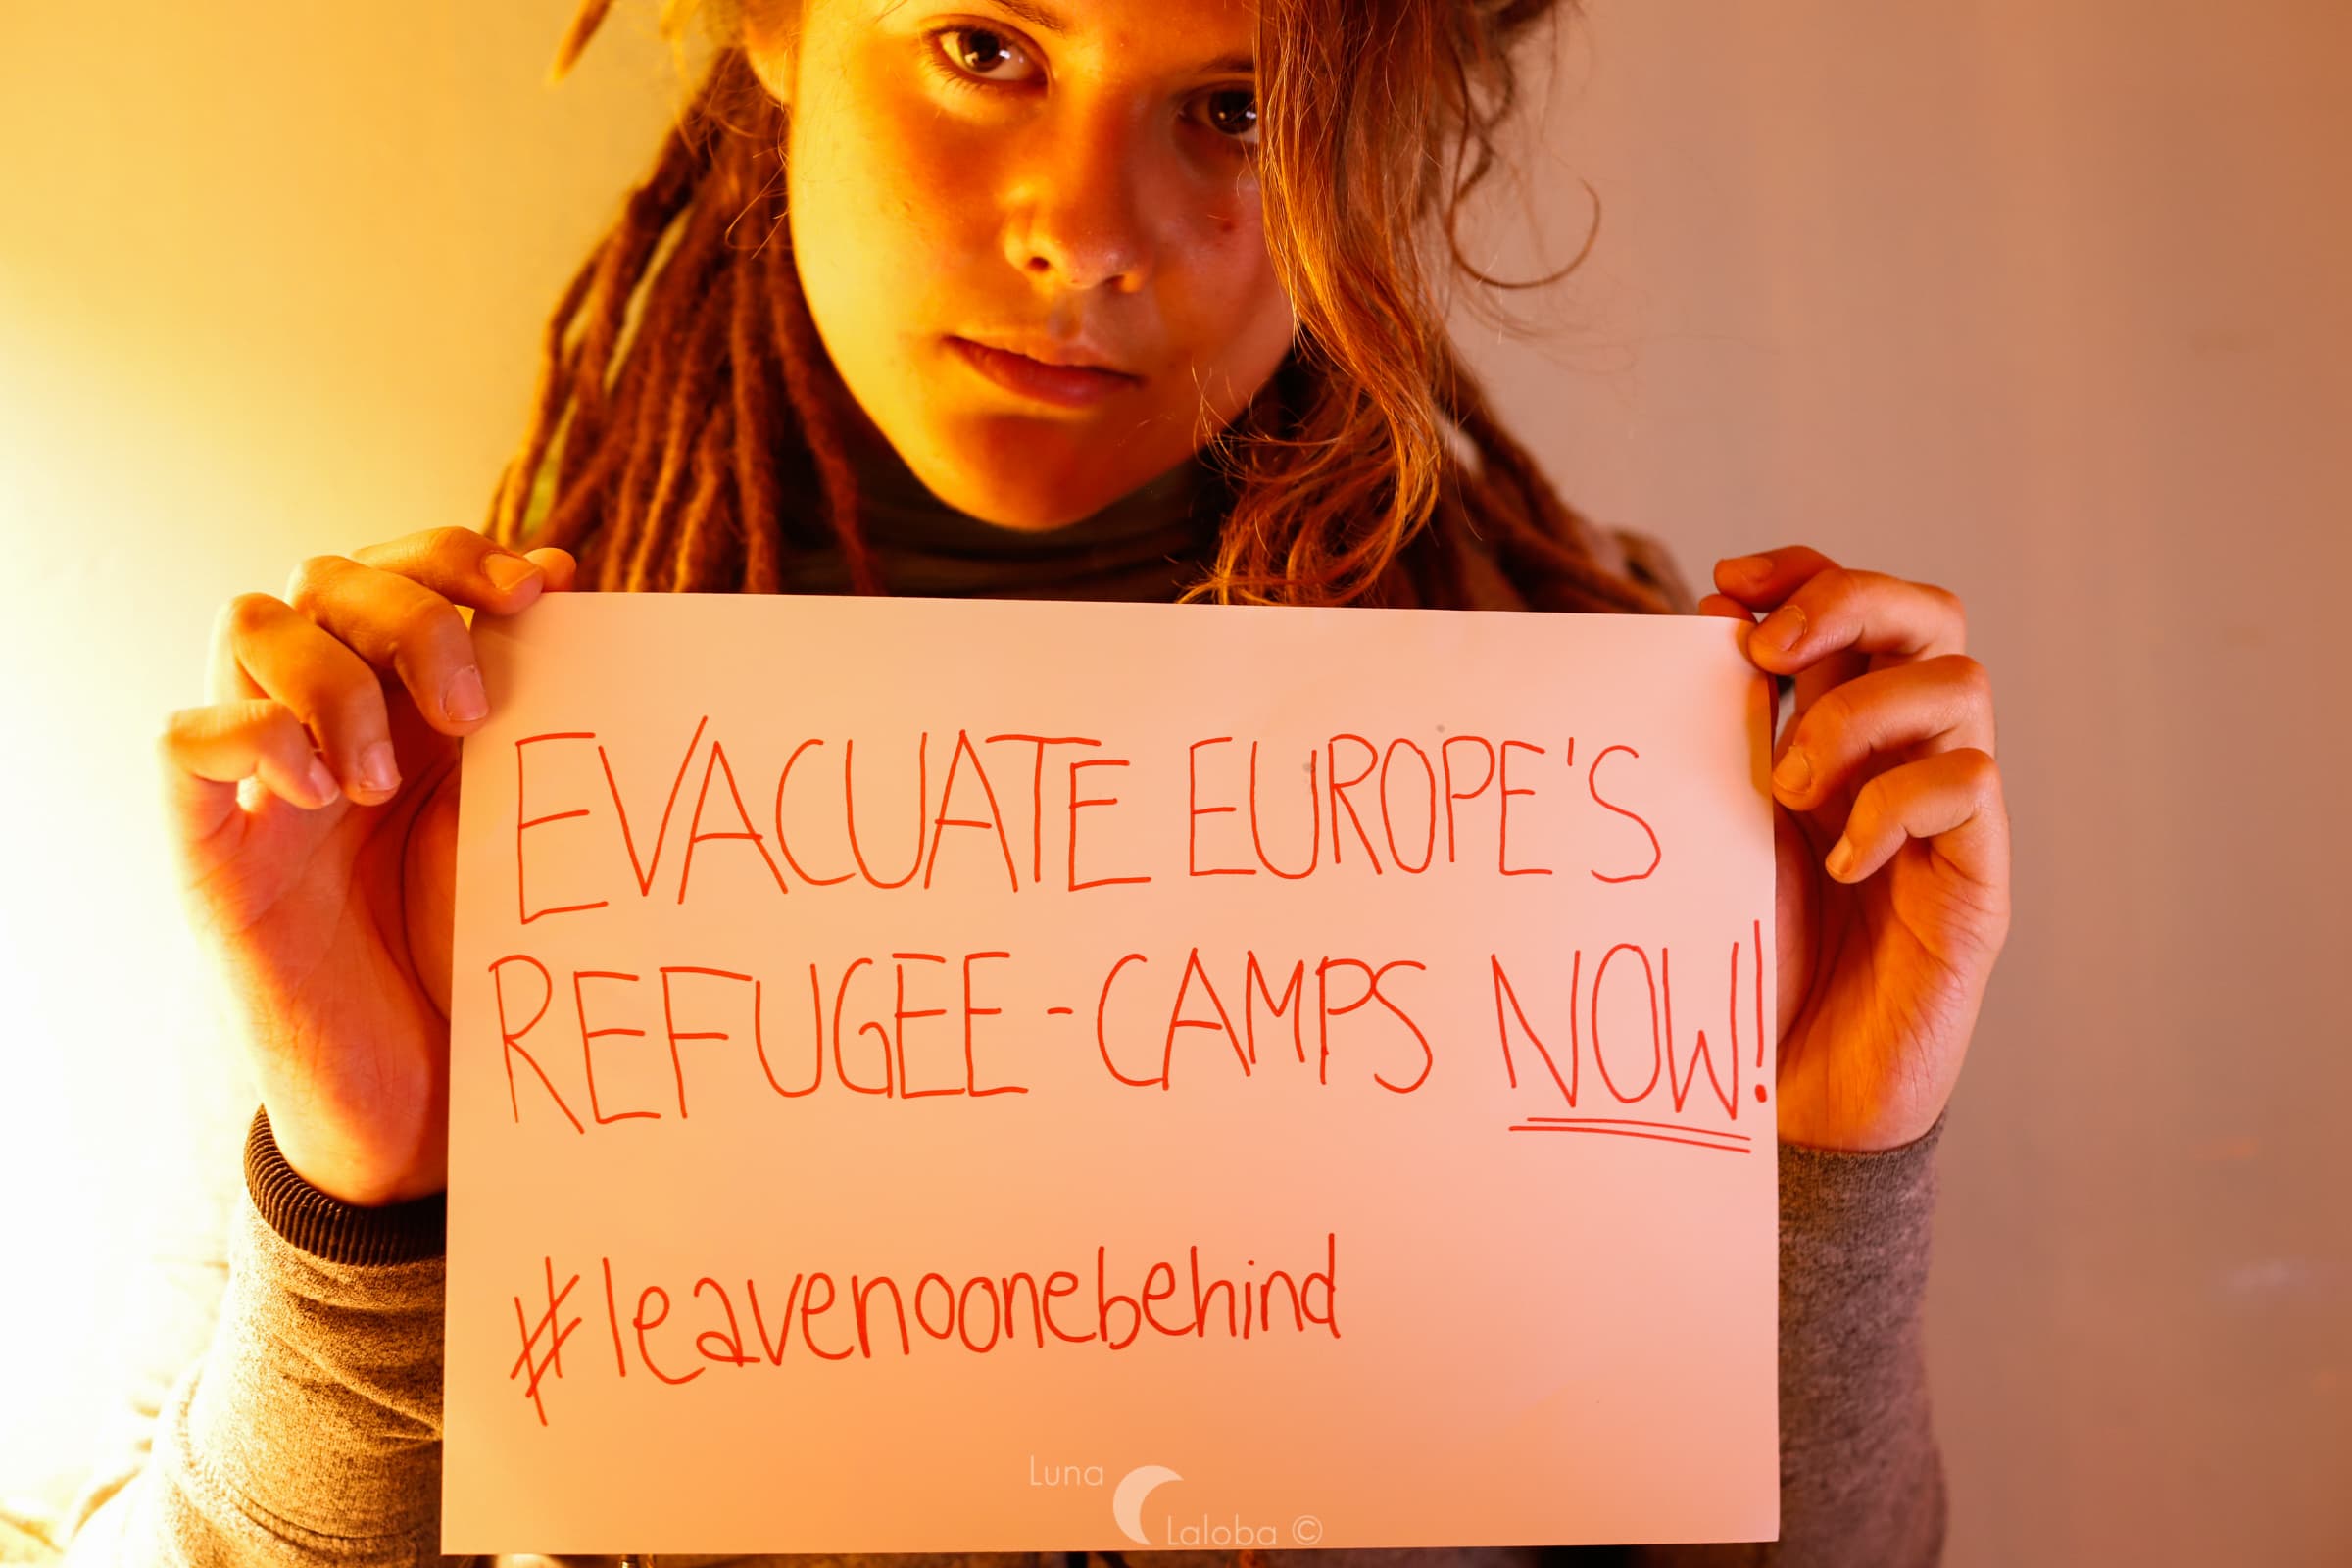 EVACUATE EUROPE'S
REFUGEE-CAMPS NOW!
#leavenoonebehind
Luna
Laloba ©